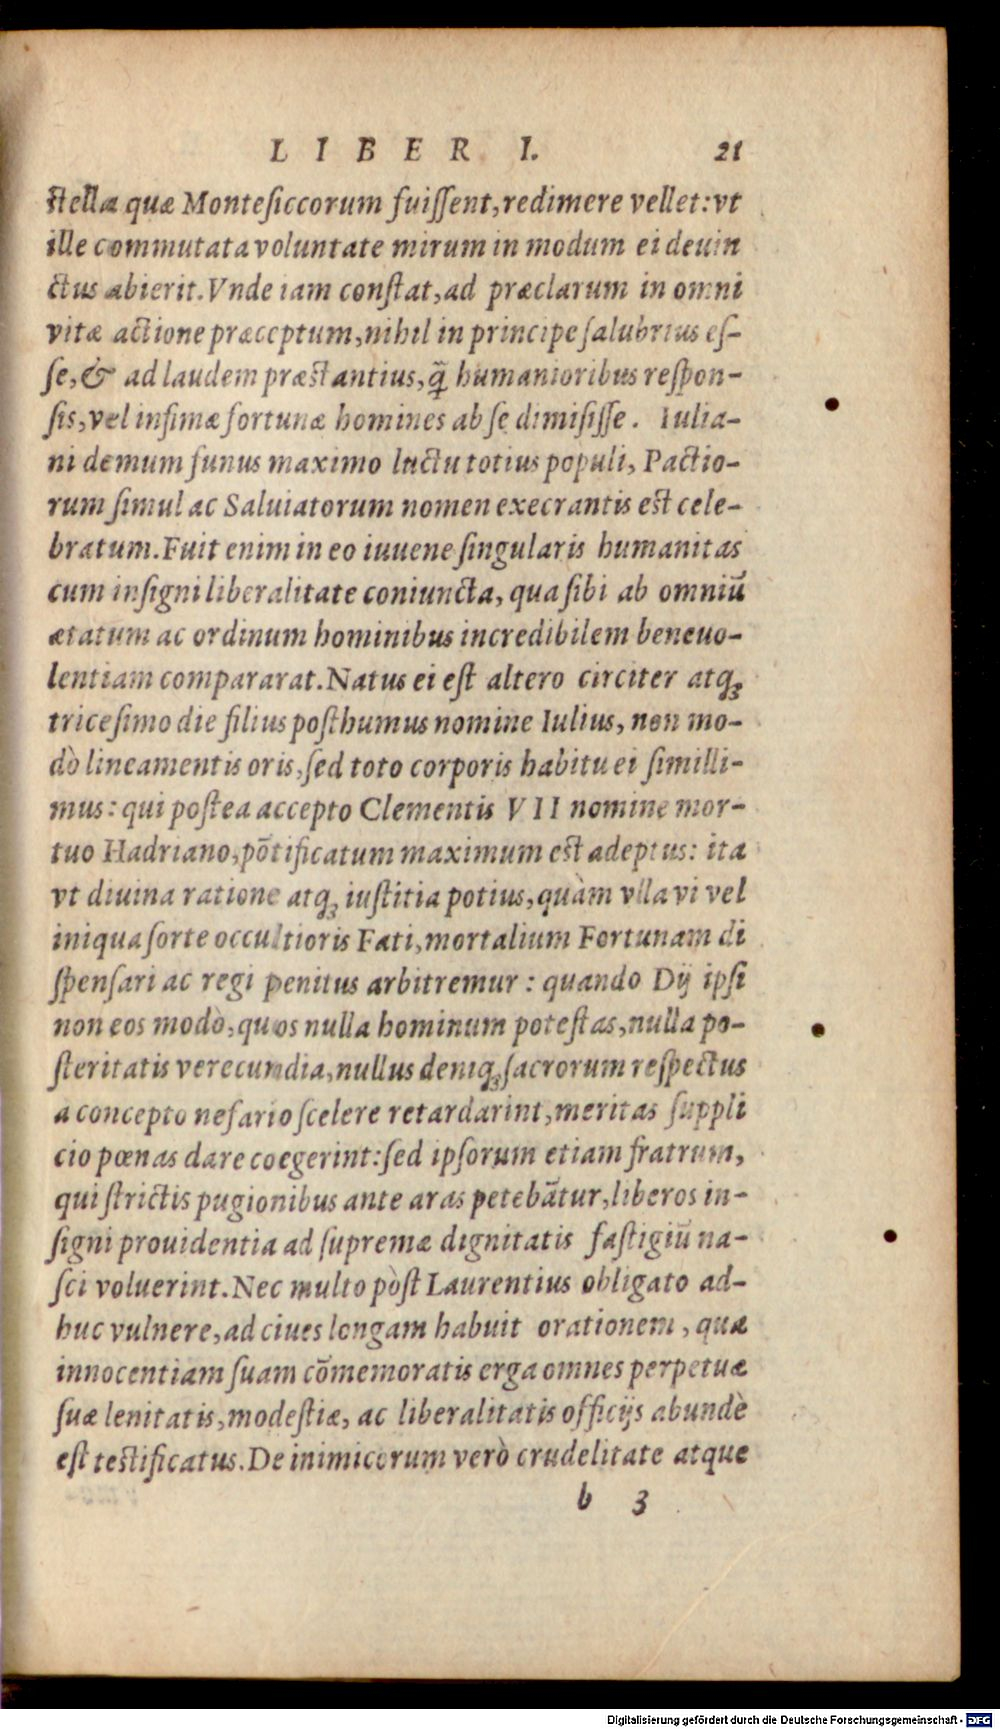 LIBER I. 21
stellæ quæ Montesiccorum fuissent, redimere vellet: vt
ille commutata voluntate mirum in modum ei deuin
ctus abierit. Vnde iam constat, ad præclarum in omni
vitæ actione præceptum, nihil in principe salubrius es-
se, & ad laudem præstantius, q̃ humanioribus respon-
sis, vel infimæ fortunæ homines ab se dimisisse. Iulia-
ni demum funus maximo luctu totius populi, Pactio-
rum simul ac Saluiatorum nomen execrantis est cele-
bratum. Fuit enim in eo iuuene singularis humanitas
cum insigni liberalitate coniuncta, qua sibi ab omniũ
ætatum ac ordinum hominibus incredibilem beneuo-
lentiam compararat. Natus ei est altero circiter atq;
tricesimo die filius posthumus nomine Iulius, non mo-
dò lineamentis oris, sed toto corporis habitu ei simili-
mus: qui postea accepto Clementis VII nomine mor-
tuo Hadriano, põtificatum maximum est adeptus: ita
vt diuina ratione atq; iustitia potius, quàm vlla vi vel
iniqua sorte occultioris Fati, mortalium Fortunam di
spensari ac regi penitus arbitremur: quando Dij ipsi
non eos modò, quos nulla hominum potestas, nulla po-
steritatis verecundia, nullus deniq; sacrorum respectus
a concepto nefario scelere retardarint, meritas suppli
cio pœnas dare coegerint: sed ipsorum etiam fratrum,
qui strictis pugionibus ante aras petebãtur, liberos in-
signi prouidentia ad supremæ dignitatis fastigiũ na-
sci voluerint. Nec multo pòst Laurentius obligato ad-
huc vulnere, ad ciues longam habuit orationem, quæ
innocentiam suam cõmemoratis erga omnes perpetuæ
suæ lenitatis, modestiæ, ac liberalitatis officijs abundè
est testificatus. De inimicorum verò crudelitate atque
b 3
Digitalisierung gefördert durch die Deutsche Forschungsgemeinschaft - DFG